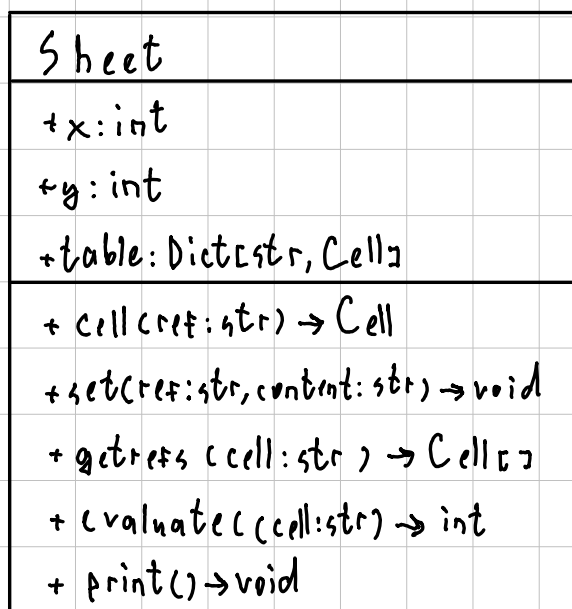 Sheet
+x:int
+y:int
+table:Dict[str,Cell]
+ cell(ref:str) → Cell
+set(ref:str,content:str) → void
+ getrefs (cell:str) → Cell[]
+ evaluate(cell:str) → int
+ print() → void